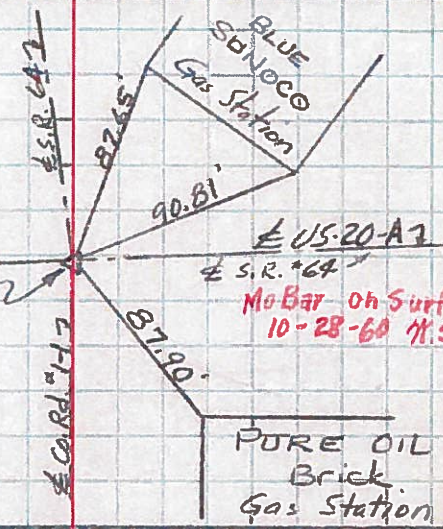 BLUE
SUNOCO
Gas Station
℄ S.R. 64
87.65'
90.81'
℄ US-20-A
℄ S.R. #64
Mo Bar on Surf
10-28-60
87.90'
℄ Co. Rd. #1-7
PURE OIL
Brick
Gas Station